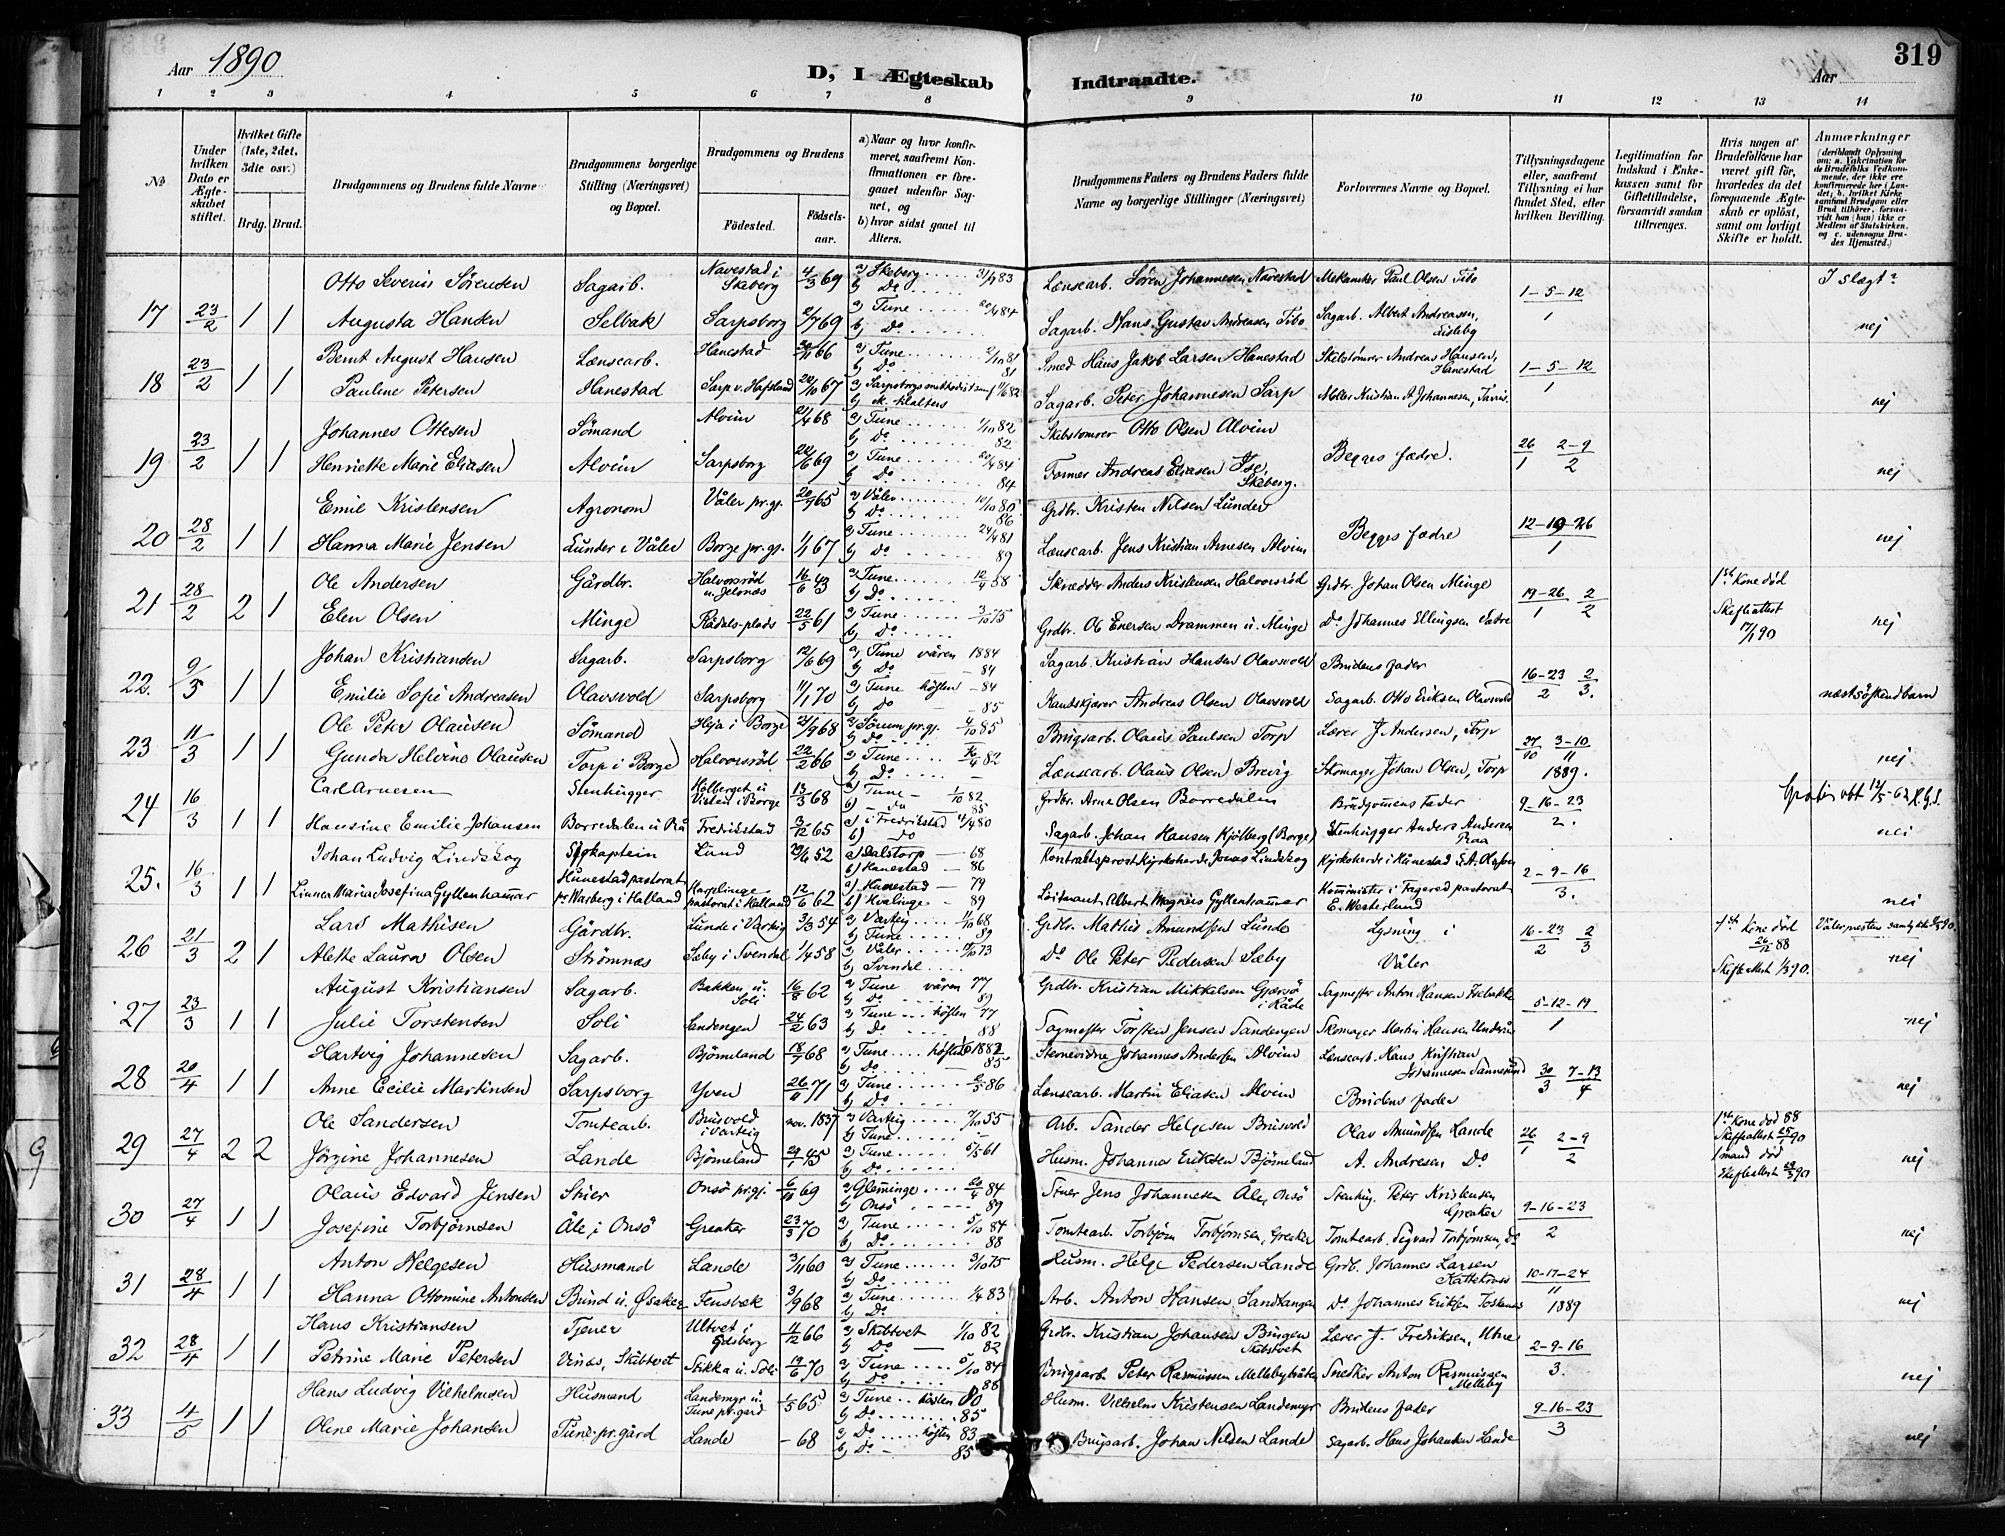 319
Aar 1890
D, I Ægteskab Indtraadte.
Aar
1 2 3 4 5 6 7 8 9 10 11 12 13 14
No
Under hvilken Dato er Ægteskabet stiftet.
Hvilket Gifte (1ste, 2det, 3die osv.)
Brdg. Brud.
Brudgommens og Brudens fulde Navne
Brudgommens borgerlige Stilling (Næringsvei) og Bopæl.
Brudgommens og Brudens
Födested. Födselsaar.
a) Naar og hvor konfirmeret, saafremt Konfirmationen er foregaaet udenfor Sognet, og
b) hvor sidst gaaet til Alters.
Brudgommens Faders og Brudens Faders fulde Navne og borgerlige Stillinger (Næringsvei)
Forlovernes Navne og Bopæl.
Tillysningsdagene eller, saafremt Tillysning ei har fundet Sted, efter hvilken Bevilling.
Legitimation for Indskud i Enkekassen samt for Giftetilladelse, forsaavidt saadan tiltrænges.
Hvis nogen af Brudefolkene har været gift før, hvorledes da det foregaaende Ægteskab er opløst, samt om lovligt Skifte er holdt.
Anmærkninger (deriblandt Oplysning om: a. Vakcination for de Brudefolks Vedkommende, der ikke ere konfirmerede her i Landet; b. hvilket Kirkesamfund Brudgom eller Brud tilhører, forsaavidt han (hun) ikke er Medlem af Statskirken, og c. udensogns Brudes Hjemsted.)
Otto Severin Sörensen Sagarb. Navestad i Skeberg 4/3 69 a) Skeberg 83 b) Do Lænsearb. Sören Johannesen Navestad Mekaniker Paul Olsen Tibo 1-5-12 I slægt?
17 23/2 1 1 Augusta Hansen Selbak Sarpsborg 2/7 69 a) Tune 84 b) Do Sagarb. Hans Gustav Andreasen Tibo Sagarb. Albert Andreasen, Lisleby 1 nej
Bernt August Hansen Lænsearb. Hanestad 66 a) Tune 2/10 81 b) Do 81 Smed Hans Jakob Larsen Hanestad Skibstömrer Andreas Hansen, Hanestad 1-5-12
18 23/2 1 1 Pauline Petersen Hanestad Sarp v. Hafslund 20/10 67 a) Sarpsborgs methodist 82 Sagarb. Peter Johannesen Sarp Möller Kristian A Johannesen, 1 nej
Johannes Ottesen Sömand Alvim 68 a) Tune 1/10 82 b) Do 82 Skibstömrer Otto Olsen Alvim
19 23/2 1 1 Henriette Marie Eliasen Alvim Sarpsborg 22/6 69 a) Tune 20/4 84 b) Do 84 Former Andreas Eliasen Ise, Skeberg. Begges fædre. 26/1 2-9/2 nej
Emil Kristensen Agronom Våler pr.gj. 20/9 65 a) Våler 10/10 80 b) Do 86 Grdbr. Kristen Nilsen Lunder
20 28/2 1 1 Hanna Marie Jensen Lunder i Våler Borge pr.gj. 1/1 67 a) Tune 24/4 81 b) Do 89 Lænsearb. Jens Kristian Arnesen Alvim Begges fædre 12-19-26/1 nej
Ole Andersen Gårdbr. Halvorsröd u. Jelsnæs 16/6 43 a) Tune 12/4 58 b) Do Skrædder Anders Kristensen Halvorsröd Grdbr. Johan Olsen Minge 1ste Kone död
21 28/2 2 1 Elen Olsen Minge Rådals-plads 22/5 61 a) Tune 3/10 75 b) Do Grdbr. Ole Enersen Drammen u. Minge Do Johannes Ellingsen Valne 19-26/1 2/2 Skifteattest 17/1 90 nej
Johan Kristiansen Sagarb. Sarpsborg 12/6 69 a) Tune våren 1884 b) Do - 84 Sagarb. Kristian Hansen Olavsvold Brudens fader
22. 9/5 1 1 Emilie Sofie Andreasen Olavsvold Sarpsborg 11/1 70 a) Tune hösten - 84 b) Do 85 Kantskjærer Andreas Olsen Olavsvold Sagarb. Otto Eriksen Olavsvold 16-23/2 2/3. næstsöskendbarn
Ole Peter Olausen Sömand Heja i Borge 21/9 68 a) Sørum pr.gj. 4/10 85 b) Do Brugsarb. Olaus Paulsen Torp Lærer J Andersen, Torp
23 11/3 1 1 Gunda Helvine Olausen Torp i Borge Halvorsröd 22/2 66 a) Tune 82 b) Do Lænsearb. Olaus Olsen Brevig Skomager Johan Olsen, Torp 27/10 3-10/11 1889. nej
Carl Arnesen Stenhugger Kölberget u. Visten i Borge 13/3 68 a) Tune 1/10 82 b) do 85 Grdbr. Arne Olsen Borredalen Brudgommens Fader
24 16/3 1 1 Hansine Emilie Johansen Borredalen u Rå Fredrikstad 3/12 65 a) i Fredrikstad 4/4 80 b) Do Sagarb. Johan Hansen Kjölberg (Borge) Stenhugger Anders Andersen 9-16-23/2. nei
Johan Ludvig Lindskog Lund 52 a) Dalstorp - 68 b) Hanestad - 86 Kontraktsprost Kyrkoherde Jonas Lindskog Kyrkoherde i Hunestad
25. 16/3 1 1 Linnea Maria Josefina Gyllenhammar Hunestad pastorat pr Warberg i Halland Harplinge pastorat i Halland 12/6 62 a) Hunestad - 79 b) Kvalinge - 89 Löitnant Albert Magnus Gyllenhammer Komminister i Fagered pastorat E. Westerlund 2-9-16/3. nei
Lars Mathisen Gårdbr. Lunde i Varteig 3/3 54 a) Varteig 1/10 68 b) Tune 89 Grdbr. Mathis Amundsen Lunde Lysning i 1ste Kone död 26/12 88
26 21/3 2 1 Alette Laura Olsen Strömnæs Sæby i Svendal 1/4 58 a) Våler 73 b) Svendal Do Ole Peter Pedersen Sæby Våler 16-23/2 2/3 Skifteattest 90. nej
August Kristiansen Sagarb. Bakken u. Soli 16/8 62 a) Tune våren 77 b) Do 89 Grdbr. Kristian Mikkelsen Gjærsö i Råde Sagmester Anton Hansen Isebakke
27 23/3 1 1 Julie Torstensen Soli Sandengen 24/2 63 a) Tune hösten 77 b) Do 88 Sagmester Torsten Jensen Sandengen Skomager Martin Hansen 5-12-19/1 nej
Hartvig Johannesen Sagarb. Bjömeland 18/7 68 a) Tune hösten 1882 b) Do 85 Johannes Andersen Alvim Lænsearb. Hans Kristian Johannesen Sannesund
28 20/4 1 1 Anne Cecilie Martinsen Sarpsborg Yven 26/11 71 a) Tune 86 b) Do Lænsearb. Martin Eliasen Alvim Brudens fader 30/3 7-13/4 nej
Ole Sandersen Tomtearb. Brusvold i Varteig nov. 1837 a) Varteig 7/10 55 b) Tune Arb. Sander Helgesen Brusvold Olav Amundsen Lande 1ste Kone död 88 Skifteattest 90
29 27/4 2 2 Jörgine Johannesen Lande Bjömeland 29/1 45 a) Tune 61 b) Do Husm. Johannes Eriksen Bjömeland A. Andresen Do 26/1 2-9/2 1 mand död Skifteattest 90 nej
Olaus Edvard Jensen Stuer Onsö pr.gj. 6/11 69 a) Glemminge 20/4 84 b) Onsö 89 Stuer Jens Johannesen Åle, Onsö Stenhug. Peter Kristensen Greaker
30 27/4 1 1 Josefine Torbjörnsen Åle i Onsö Greaker 23/3 70 a) Tune 5/10 84 b) Do 88 Tomtearb. Torbjörn Torbjörnsen, Greaker Tomtearb. Sigvard Torbjörnsen, Do 9-16-23/2 nej
Anton Helgesen Husmand Lande 3/11 60 a) Tune 3/10 75 b) Do Husm. Helge Pedersen Lande Grdb. Johannes Larsen
31 28/4 1 1 Hanna Ottomine Antonsen Bund u. Øsaker Fensbæk 3/9 68 a) Tune 1/4 83 b) Do Arb. Anton Hansen Sandtangen Do Johannes Eriksen 10-17-24/11 1889 nej
Hans Kristiansen Tjener Ultvet i Eidsberg 11/12 66 a) Skibtvet 1/10 82 b) Do 82 Grdbr. Kristian Johansen Bingen Skibtvet Lærer J. Fredriksen, Utne
32 28/4 1 1 Petrine Marie Petersen Vinæs, Skibtvet Stikka u. Soli 19/6 70 a) Tune 5/10 84 b) Do 88 Brugsarb. Peter Rasmussen Mellebybråten Snedker Anton Rasmussen Melleby 2-9-16/3. nej
Hans Ludvig Vilhelmsen Husmand Landemyr u. Tune pr.gård 1/5 65 a) Tune hösten 80 b) Do 85 Husm. Vilhelm Kristensen Landemyr Brudens fader
33 4/5 1 1 Oline Marie Johansen Tune pr.gård Lande - 68 a) Do hösten 83 b) Do - 85 Brugsarb. Johan Nilsen Lande Sagarb. Hans Johansen Lande 9-16-23/3 nej